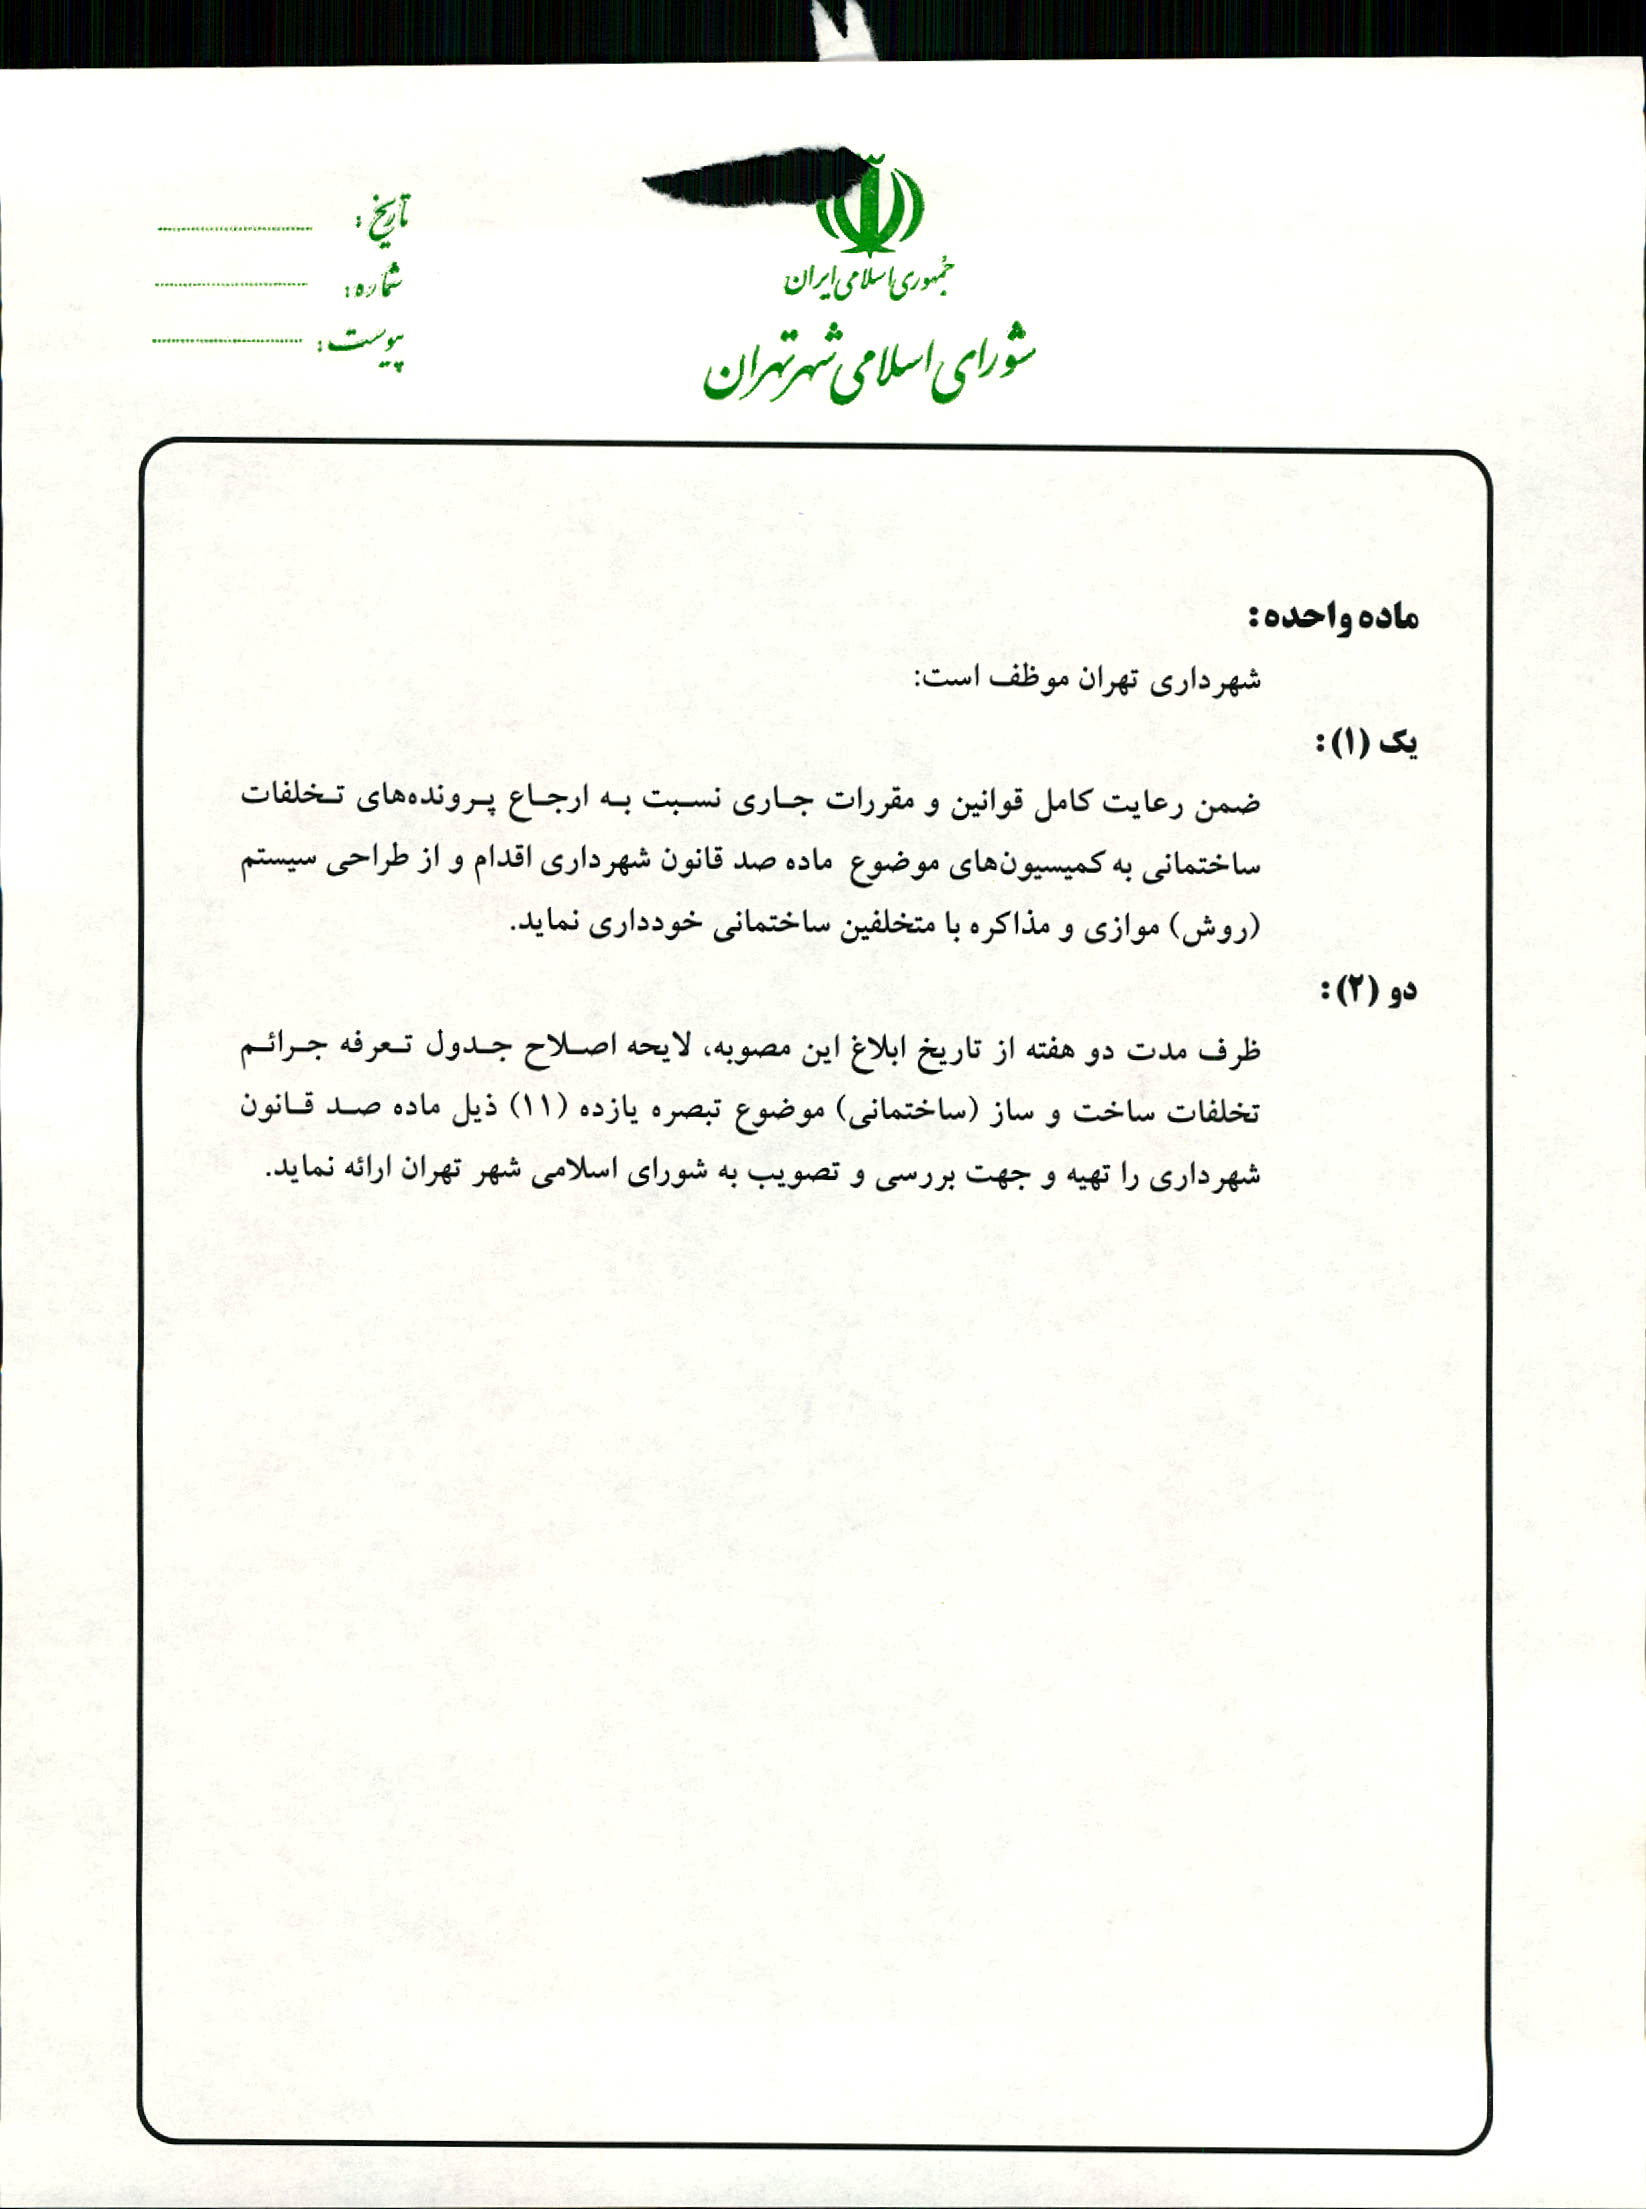 جمهوری اسلامی ایران
شورای اسلامی شهر تهران
تاریخ:
شماره:
پیوست:
ماده واحده:
شهرداری تهران موظف است:
یک (۱):
ضمن رعایت کامل قوانین و مقررات جاری نسبت به ارجاع پرونده‌های تخلفات
ساختمانی به کمیسیون‌های موضوع ماده صد قانون شهرداری اقدام و از طراحی سیستم
(روش) موازی و مذاکره با متخلفین ساختمانی خودداری نماید.
دو (۲):
ظرف مدت دو هفته از تاریخ ابلاغ این مصوبه، لایحه اصلاح جدول تعرفه جرائم
تخلفات ساخت و ساز (ساختمانی) موضوع تبصره یازده (۱۱) ذیل ماده صد قانون
شهرداری را تهیه و جهت بررسی و تصویب به شورای اسلامی شهر تهران ارائه نماید.